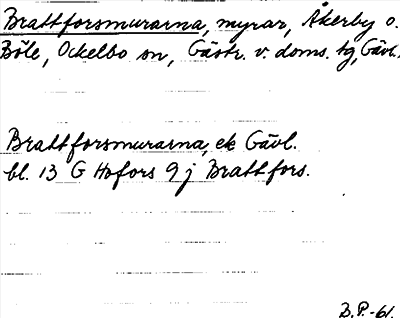 Brattforsmurarna, myrar, Åkerby o.
Böle, Ockelbo sn, Gästr. v. doms. tg, Gävl.
Brattforsmurarna, ek Gävl.
bl. 13 G Hofors 9 j Brattfors.
B.P.-61.